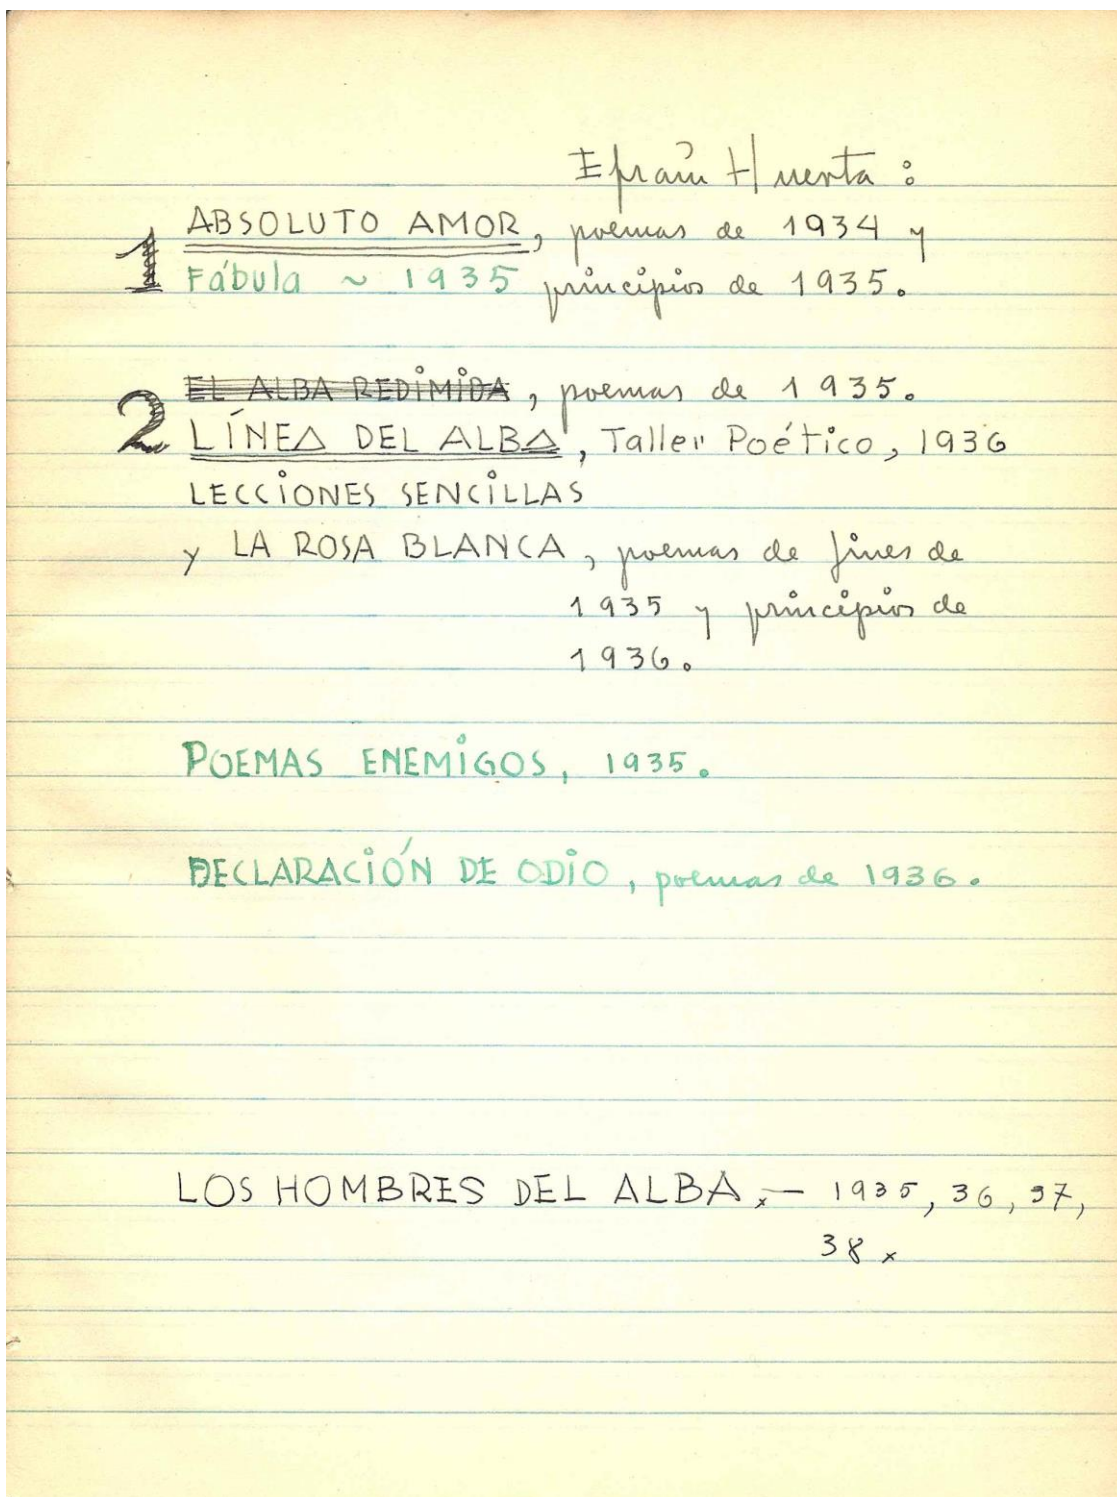 Efraín Huerta:
1 ABSOLUTO AMOR, poemas de 1934 y
Fábula ~ 1935 principios de 1935.
EL ALBA REDIMIDA, poemas de 1935.
2 LÍNEA DEL ALBA, Taller Poético, 1936
LECCIONES SENCILLAS
y LA ROSA BLANCA, poemas de fines de
1935 y principios de
1936.
POEMAS ENEMIGOS, 1935.
DECLARACIÓN DE ODIO, poemas de 1936.
LOS HOMBRES DEL ALBA.- 1935, 36, 37,
38.